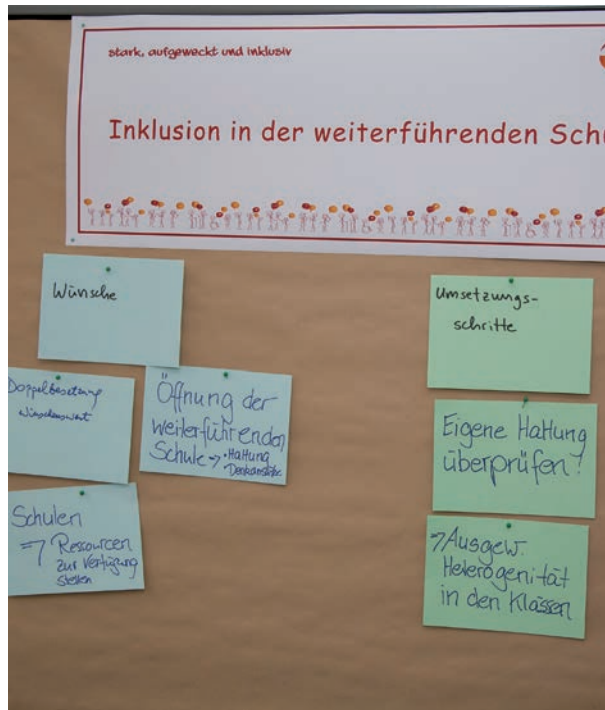 stark, aufgeweckt und inklusiv
Inklusion in der weiterführenden Schu
Wünsche
Doppelbesetzung
wünschenswert
Öffnung der
weiterführenden
Schule → • Haltung
Denkanstöße
Schulen
⇒ Ressourcen
zur Verfügung
stellen
Umsetzungs-
schritte
Eigene Haltung
überprüfen!
→ Ausgew.
Heterogenität
in den Klassen